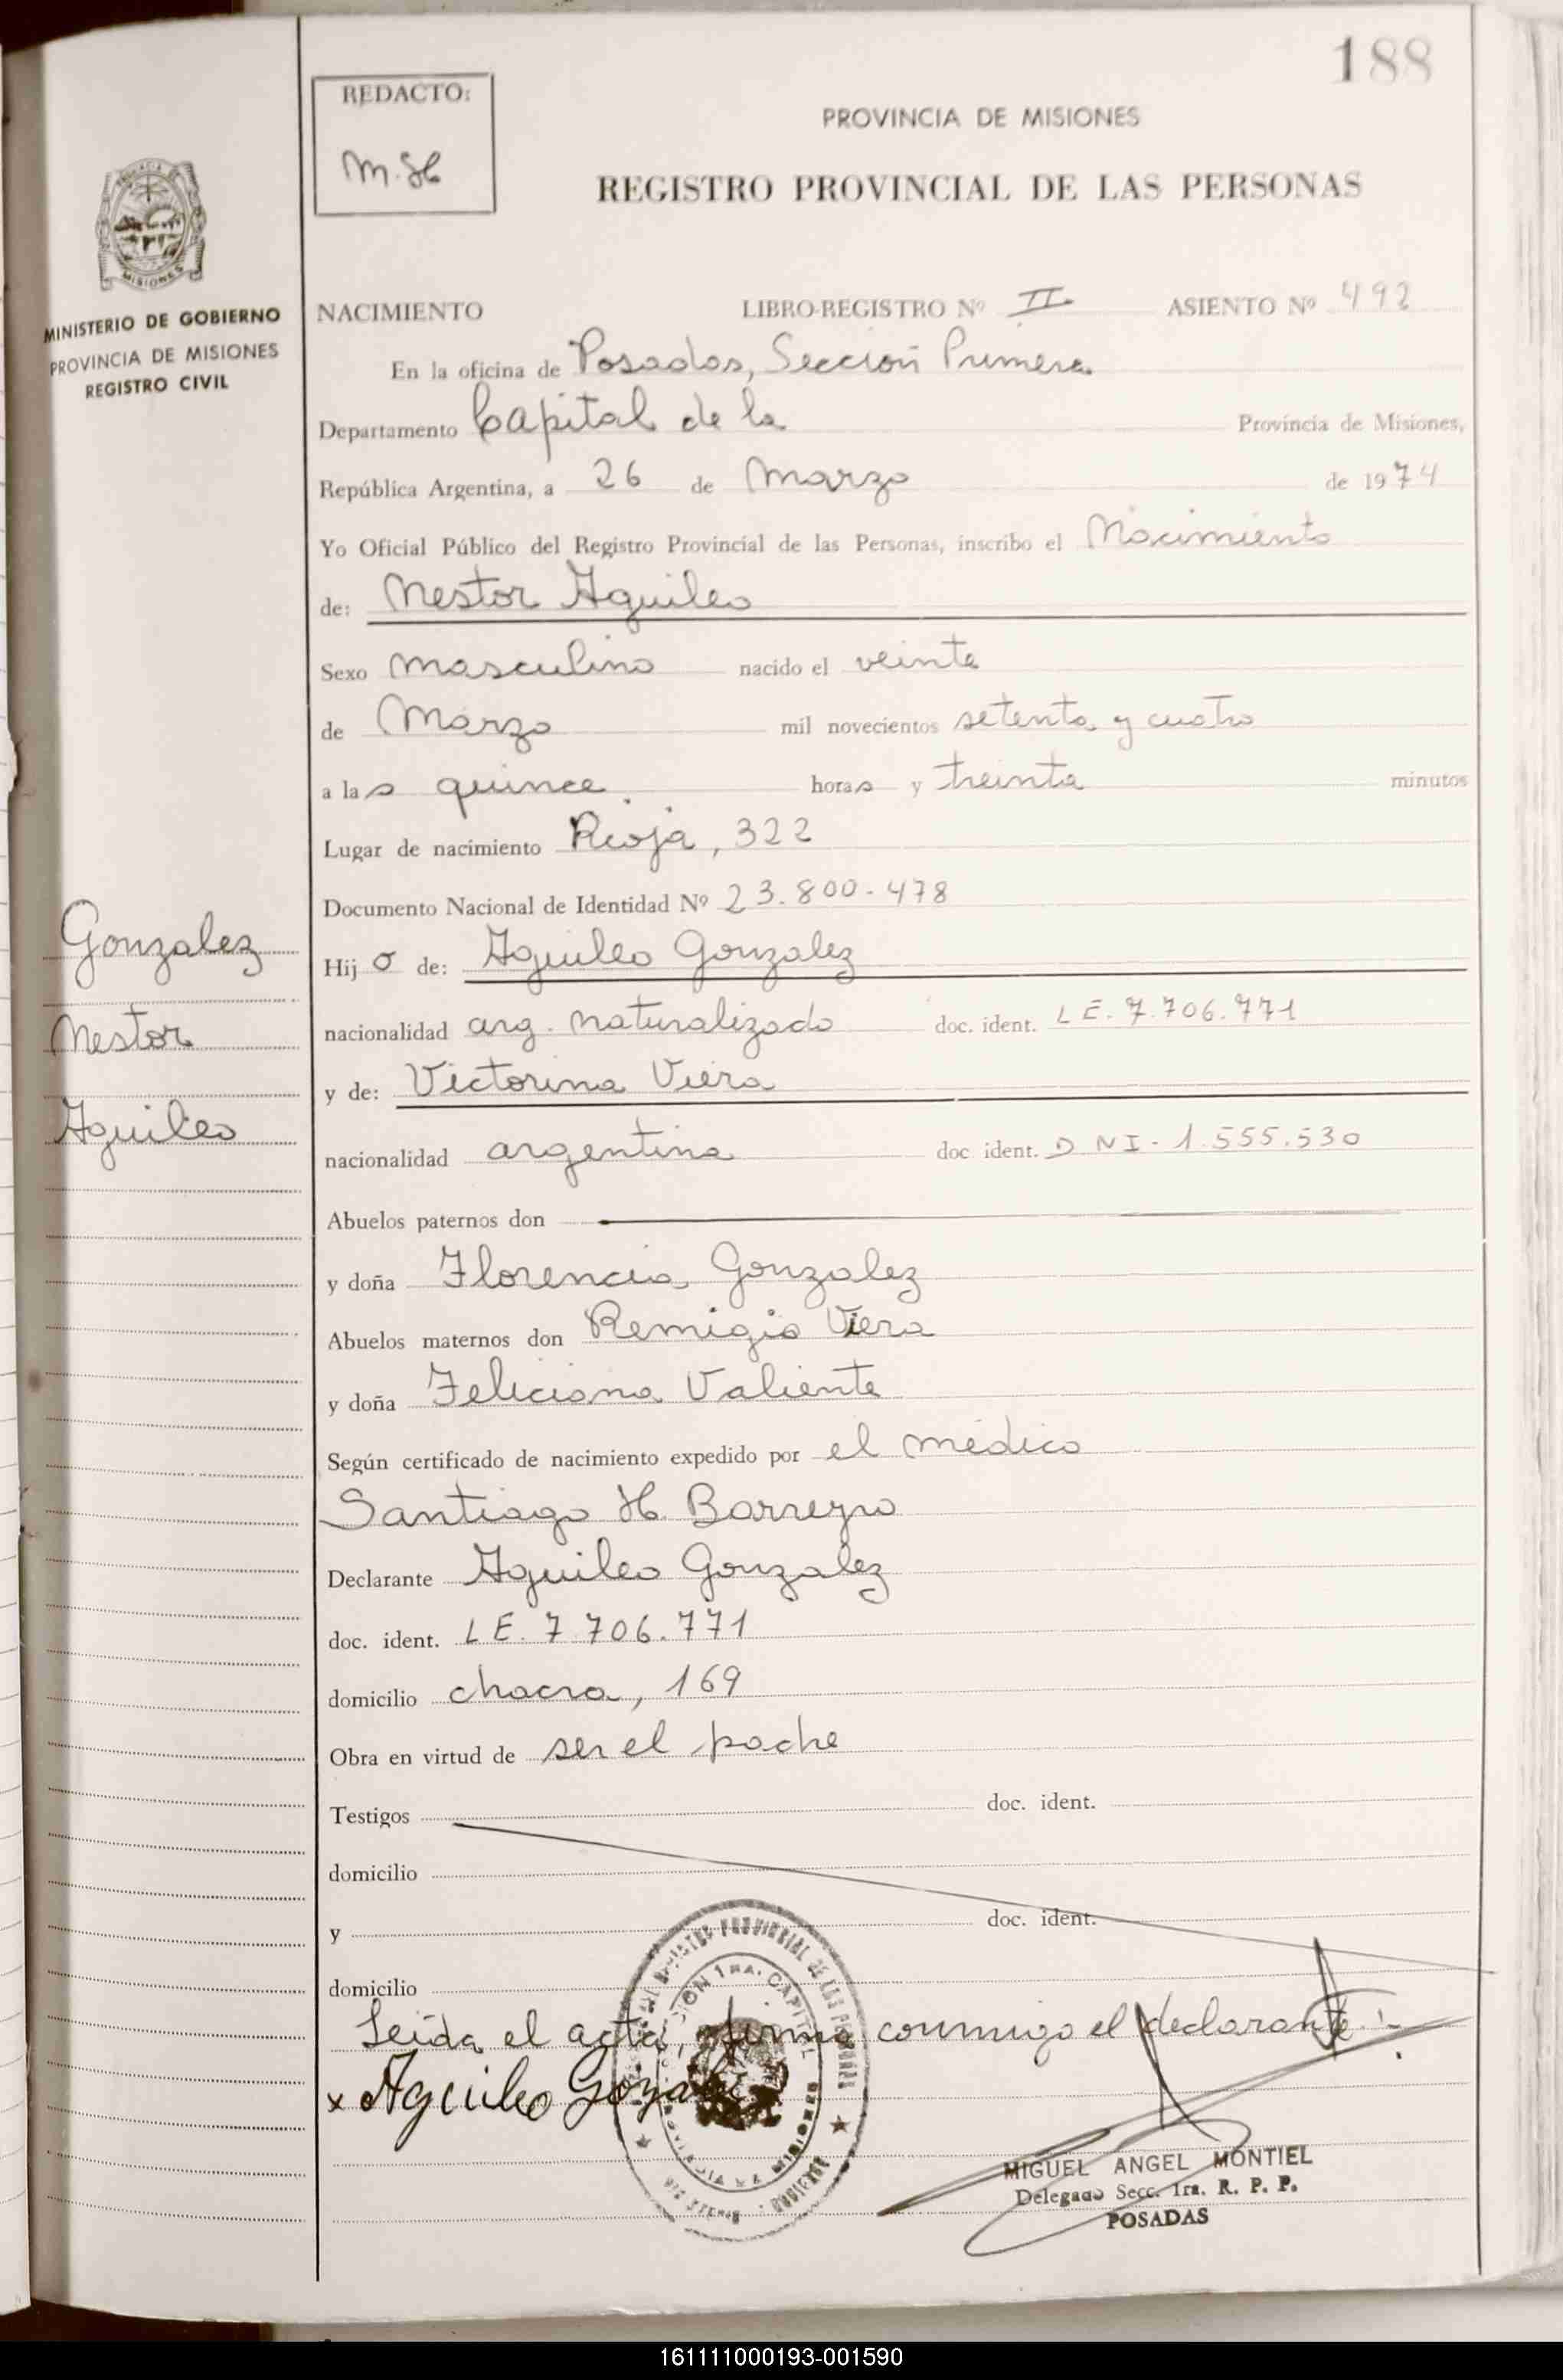 188
REDACTO:
M.H
PROVINCIA DE MISIONES
REGISTRO PROVINCIAL DE LAS PERSONAS
MISIONES
MINISTERIO DE GOBIERNO
PROVINCIA DE MISIONES
REGISTRO CIVIL
NACIMIENTO LIBRO-REGISTRO Nº II ASIENTO Nº 492
En la oficina de Posadas, Sección Primera
Departamento Capital de la Provincia de Misiones,
República Argentina, a 26 de Marzo de 1974
Yo Oficial Público del Registro Provincial de las Personas, inscribo el Nacimiento
de: Nestor Aquileo
Sexo masculino nacido el veinte
de Marzo mil novecientos setenta y cuatro
a las quince horas y treinta minutos
Lugar de nacimiento Rioja, 322
Documento Nacional de Identidad Nº 23.800-478
Gonzalez
Nestor
Aquileo
Hijo de: Aquileo Gonzalez
nacionalidad arg. naturalizado doc. ident. LE. 7.706.771
y de: Victorina Viera
nacionalidad argentina doc ident. DNI-1.555.530
Abuelos paternos don
y doña Florencia Gonzalez
Abuelos maternos don Remigio Viera
y doña Feliciana Valiente
Según certificado de nacimiento expedido por el médico
Santiago H. Barreyro
Declarante Aquileo Gonzalez
doc. ident. LE. 7.706.771
domicilio chacra, 169
Obra en virtud de ser el padre
Testigos doc. ident.
domicilio
y doc. ident.
domicilio
Leída el acta, firma conmigo el declarante.-
x Aquileo
MIGUEL ANGEL MONTIEL
Delegado Secc. 1ra. R. P. P.
POSADAS
161111000193-001590